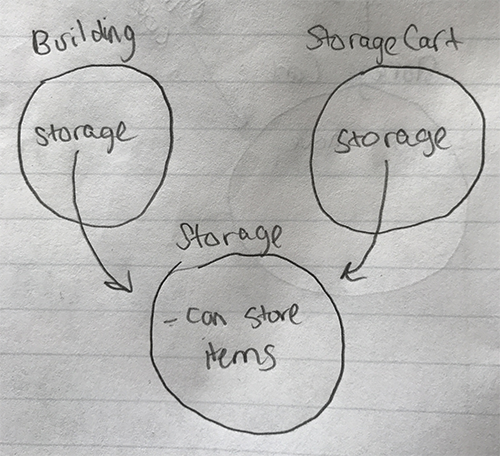 Building
StorageCart
storage
storage
Storage
- can store
items